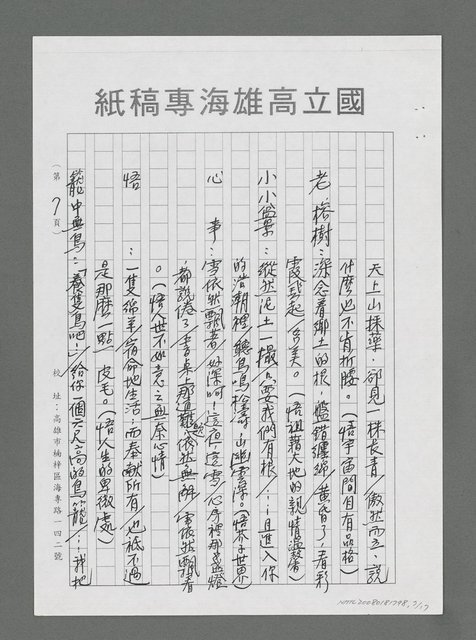 國立高雄海專稿紙
天上山採藥，卻見一株長青／傲然而立：說
什麼也不肯折腰。（悟宇宙間自有品格）
老榕樹：深念着鄉土的根／盤錯纏綿／黃昏了／看彩
霞飛起／多美。（悟祖藉大地的親情靈奮）
小小盆景：縱然泥土一撮／只要我們有根／…且進入你
的清朝裡／聽鳥鳴松濤／山幽雲深。（悟芥子世界）
心 事：雪依然飄着／好深呵／這夜這雪／心房裡那盞燈
都說倦了／書桌上那道難題依然無解／雪依然飄着
。（悟人世不如意之無奈心情）
悟 ：一隻綿羊／宿命地生活／而奉獻所有／也祇不過
是那麼一點一皮毛。（悟人生的卑微處）
籠中無鳥：「養隻鳥吧」／給你一個六尺高的鳥籠／…我把
（第7頁）
校址：高雄市楠梓區海專路一四二號
NMTL20080181798, 7/17